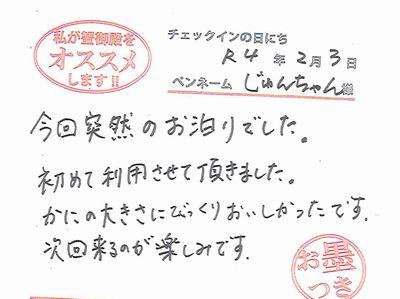 私が蟹御殿を
オススメ
します!!
チェックインの日にち
R4年2月3日
ペンネーム じゅんちゃん様
今回突然のお泊りでした。
初めて利用させて頂きました。
かにの大きさにびっくりおいしかったです.
次回来るのが楽しみです.
お墨
つき